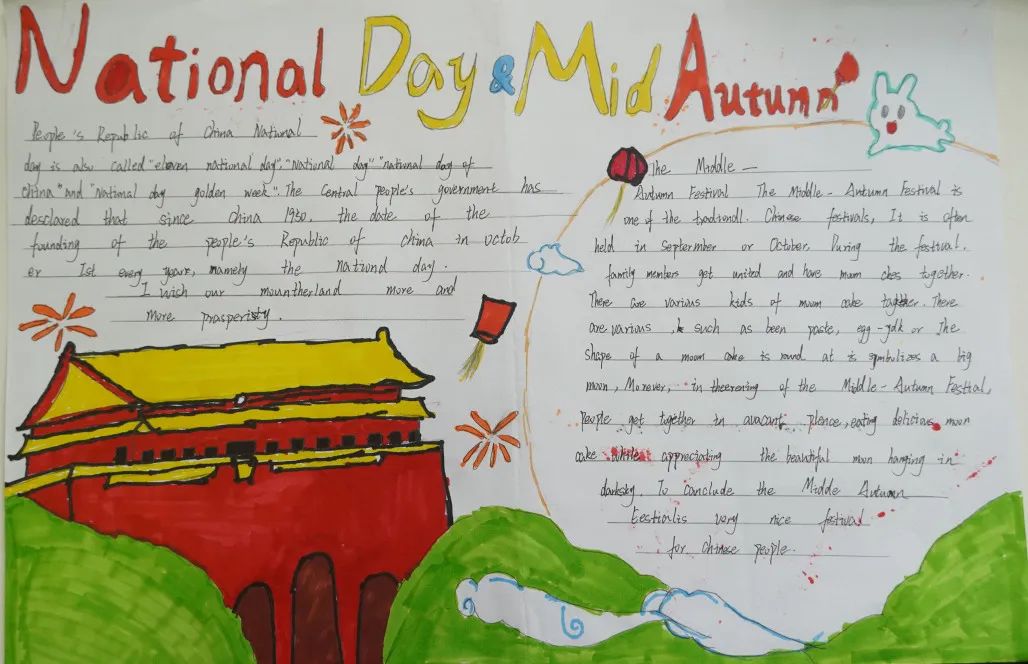 National Day & Mid Autumn
People's Republic of China National
day is also called "eleven national day", "National day" "national day of
China" and "National day golden week". The Central people's government has
desclared that since China 1950, the date of the
founding of the people's Republic of China in octob
er 1st every yeare, namely the nationd day.
I wish our mountherland more and
more prasperisty.
The Middle -
Autumn Festival The Middle - Autumn Festival is
one of the tradrionall. Chinese festivals, It is often
held in Septermber or October. During the festival.
family menters get united and have moom ckes together.
There are various kids of moom cake together. There
are various such as been paste, egg-yolk or The
shape of a moom cake is round at is symbolizes a big
moon, Morever, in theerening of the Middle - Autumn Festial,
people get together in avacant plence, eating delicious moon
cake while appreciating the beautiful moon hanging in
darksky. To conclude the Midde Autumn
Festialis very nice festival
for Chinese people.